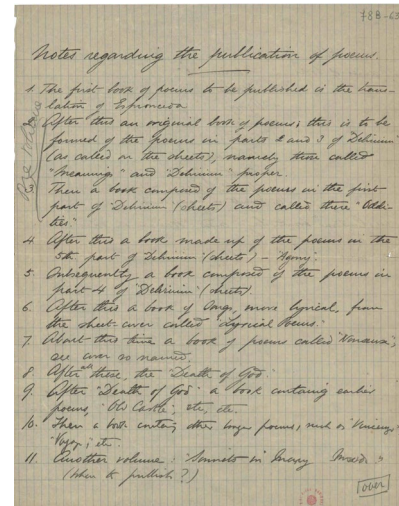 78B-65
Notes regarding the publication of poems.
1. The first book of poems to be published is the trans-
lation of Espronceda
2. After this an original book of poems; this is to be
formed of the poems in parts 2 and 3 of Delirium
(as called on the sheets), namely those called
"Meanings" and "Delirium" proper.
Then a book composed of the poems in the first
part of "Delirium" (sheets) and called there "Oddi-
ties".
4. After this a book made up of the poems in the
5th part of Delirium (sheets) —
5. Subsequently a book composed of the poems in
part 4 of "Delirium" (sheets)
6. After this a book of songs, more lyrical, from
the sheet-cover called "Lyrical Poems."
7. About this time a book of poems called
see cover so named.
8. After all these, the "Death of God."
9. After "Death of God" a book containing earlier
poems, "Old Castle", etc, etc.
10. Then a book other longer poems; such as "Vincenzo"
etc.
11. Another volume: Sonnets in Many
(When to publish?)
over